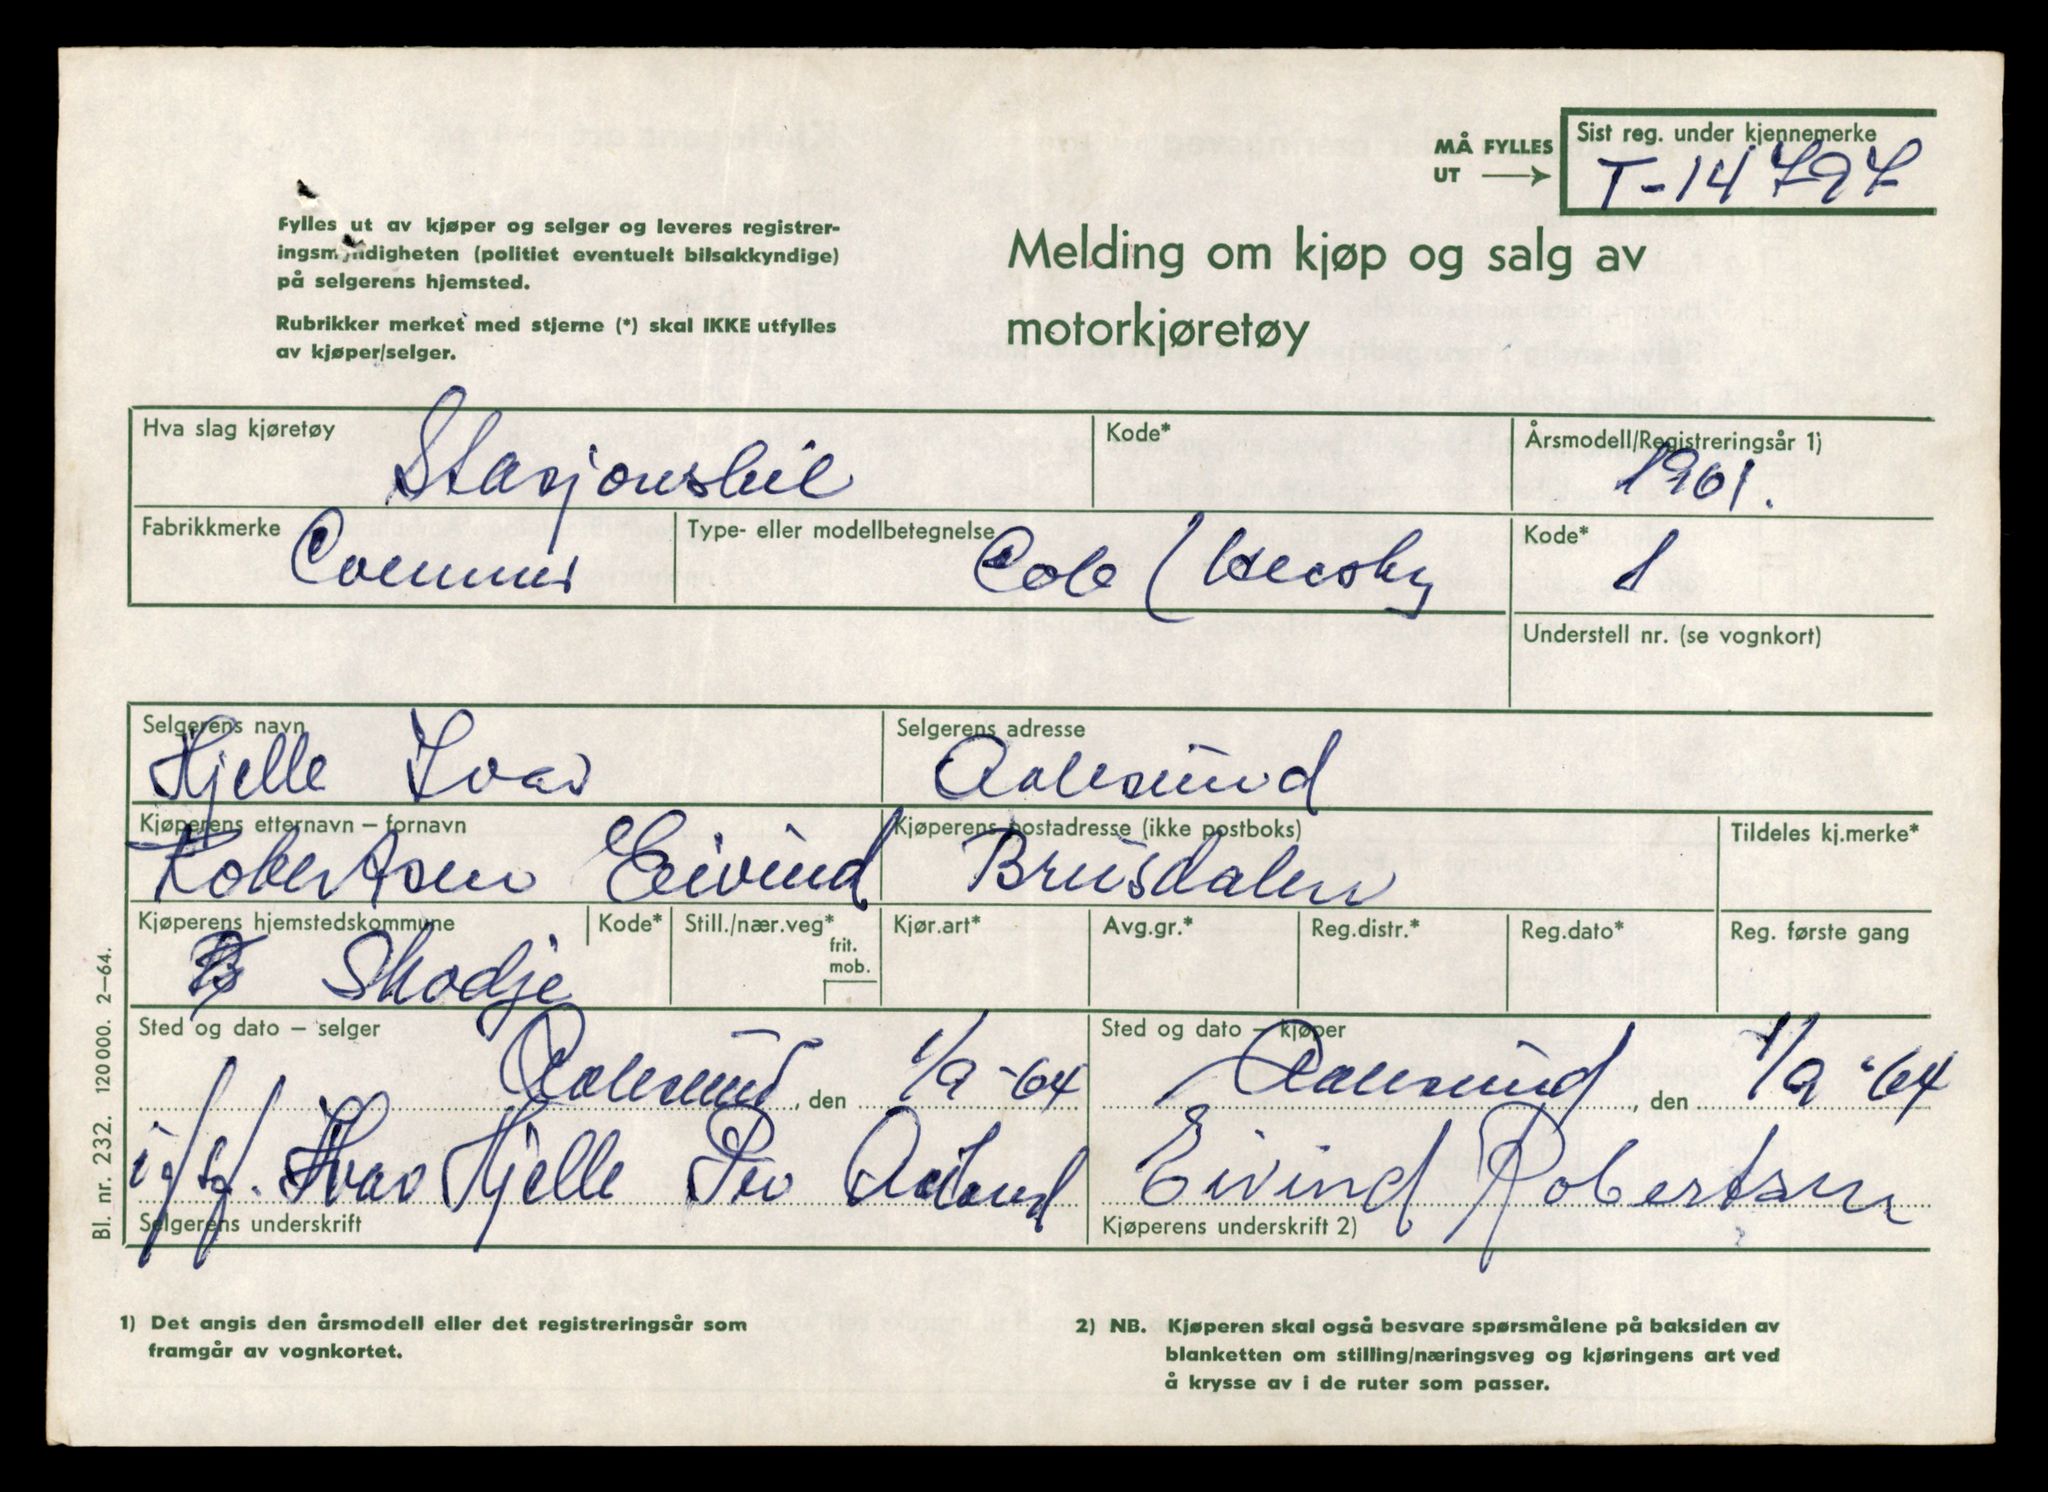 MÅ FYLLES
UT
Sist reg. under kjennemerke
T-14797
Fylles ut av kjøper og selger og leveres registrer-
ingsmyndigheten (politiet eventuelt bilsakkyndige)
på selgerens hjemsted.
Rubrikker merket med stjerne (*) skal IKKE utfylles
av kjøper/selger.
Melding om kjøp og salg av
motorkjøretøy
Hva slag kjøretøy
Stasjonsbil
Kode*
Årsmodell/Registreringsår 1)
1961.
Fabrikkmerke
Commer
Type- eller modellbetegnelse
Cob
Kode*
Understell nr. (se vognkort)
Selgerens navn
Hjelle Ivar
Selgerens adresse
Aalesund
Kjøperens etternavn – fornavn
Robertsen Eivind
Kjøperens postadresse (ikke postboks)
Brusdalen
Tildeles kj.merke*
Kjøperens hjemstedskommune
Skodje
Kode*
Still./nær.veg*
frit.
mob.
Kjør.art*
Avg.gr.*
Reg.distr.*
Reg.dato*
Reg. første gang
Sted og dato – selger
Aalesund, den 1/9 -64
Sted og dato – kjøper
Aalesund, den 1/9 -64
Ivar Hjelle
Selgerens underskrift
Eivind Robertsen
Kjøperens underskrift 2)
Bl. nr. 232. 120 000. 2–64.
1) Det angis den årsmodell eller det registreringsår som
framgår av vognkortet.
2) NB. Kjøperen skal også besvare spørsmålene på baksiden av
blanketten om stilling/næringsveg og kjøringens art ved
å krysse av i de ruter som passer.